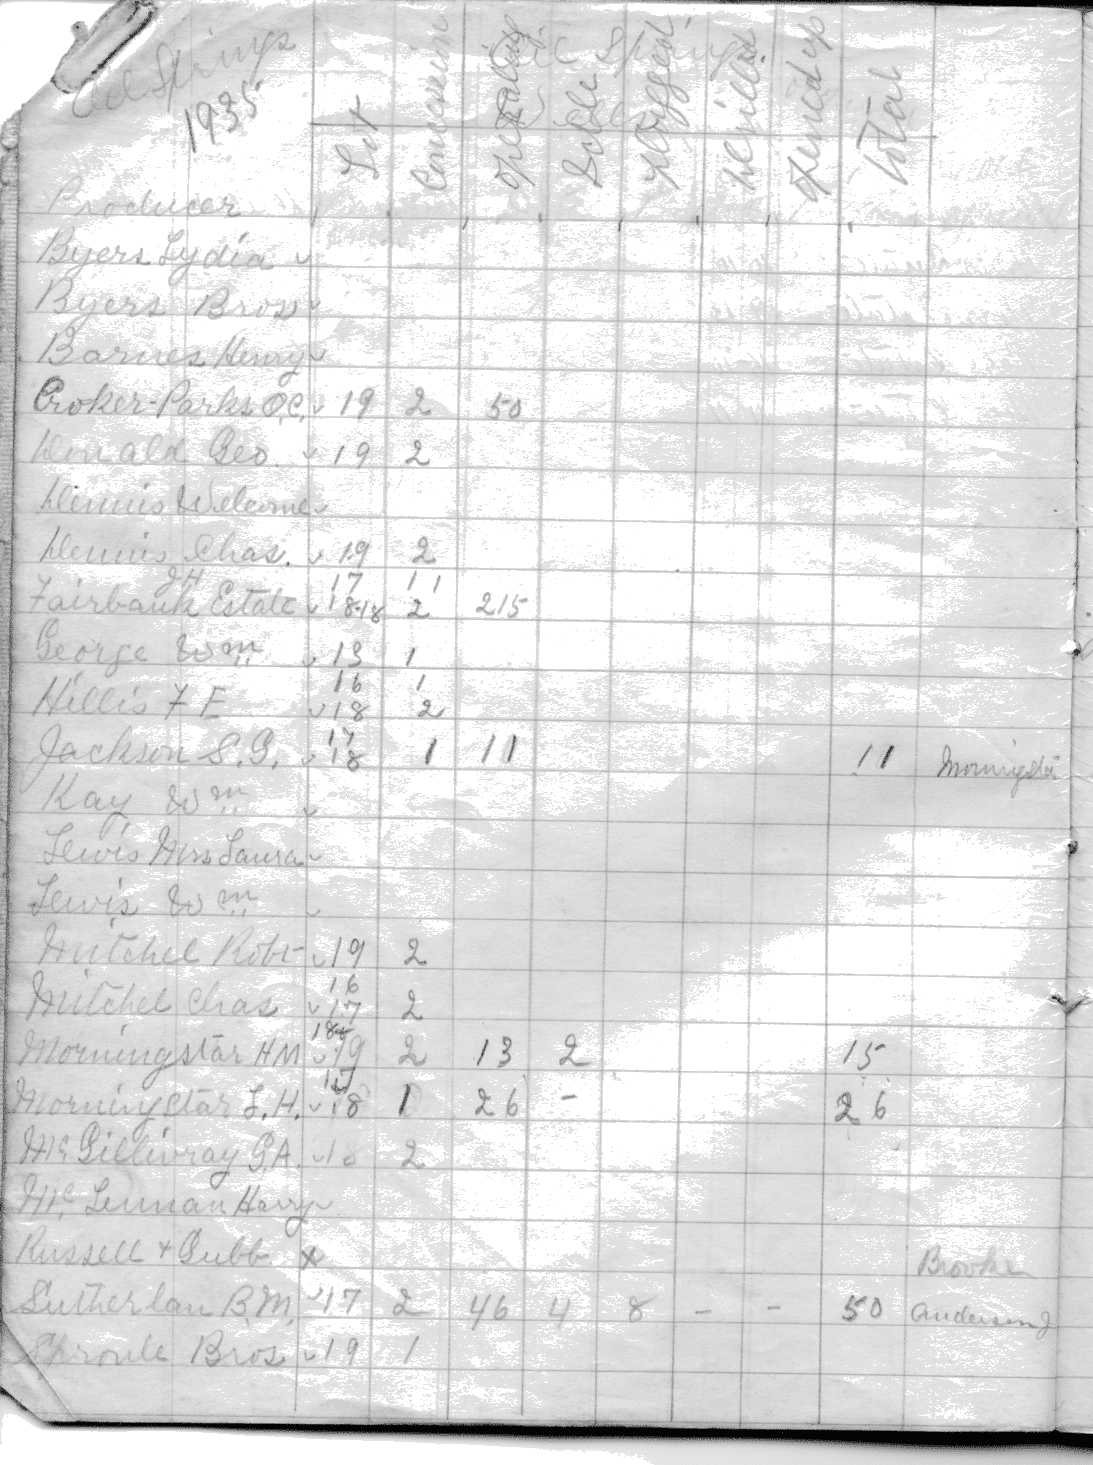 Oil Springs
1935
Producer Lot Concession operating Idle Plugged Drilled opened up Total
Byers Lydia ✓
Byers Bros ✓
Barnes Henry ✓
Croker-Parks O.C. ✓ 19 2 50
Donald Geo. ✓ 19 2
Dennis Welcome ✓
Dennis Chas. ✓ 19 2
J H 17 1 1
Fairbank Estate ✓ 18-18 2 215
George Wm ✓ 13 1
16 1
Hillis F E ✓ 18 2
17
Jackson S. G. ✓ 18 1 11 11 Morningstar
Kay Wm ✓
Lewis Mrs Laura ✓
Lewis Wm ✓
Mitchel Robt ✓ 19 2
16
Mitchel Chas ✓ 17 2
18+
Morningstar H M ✓ 19 2 13 2 15
17
Morningstar L. H. ✓ 18 1 26 - 26
McGillivray G.A. ✓ 18 2
McLennan Harry ✓
Russell + Gubb x
Brooke
Sutherlan B.M. ✓ 17 2 46 4 8 - - 50 anderson J
Sproule Bros ✓ 19 1